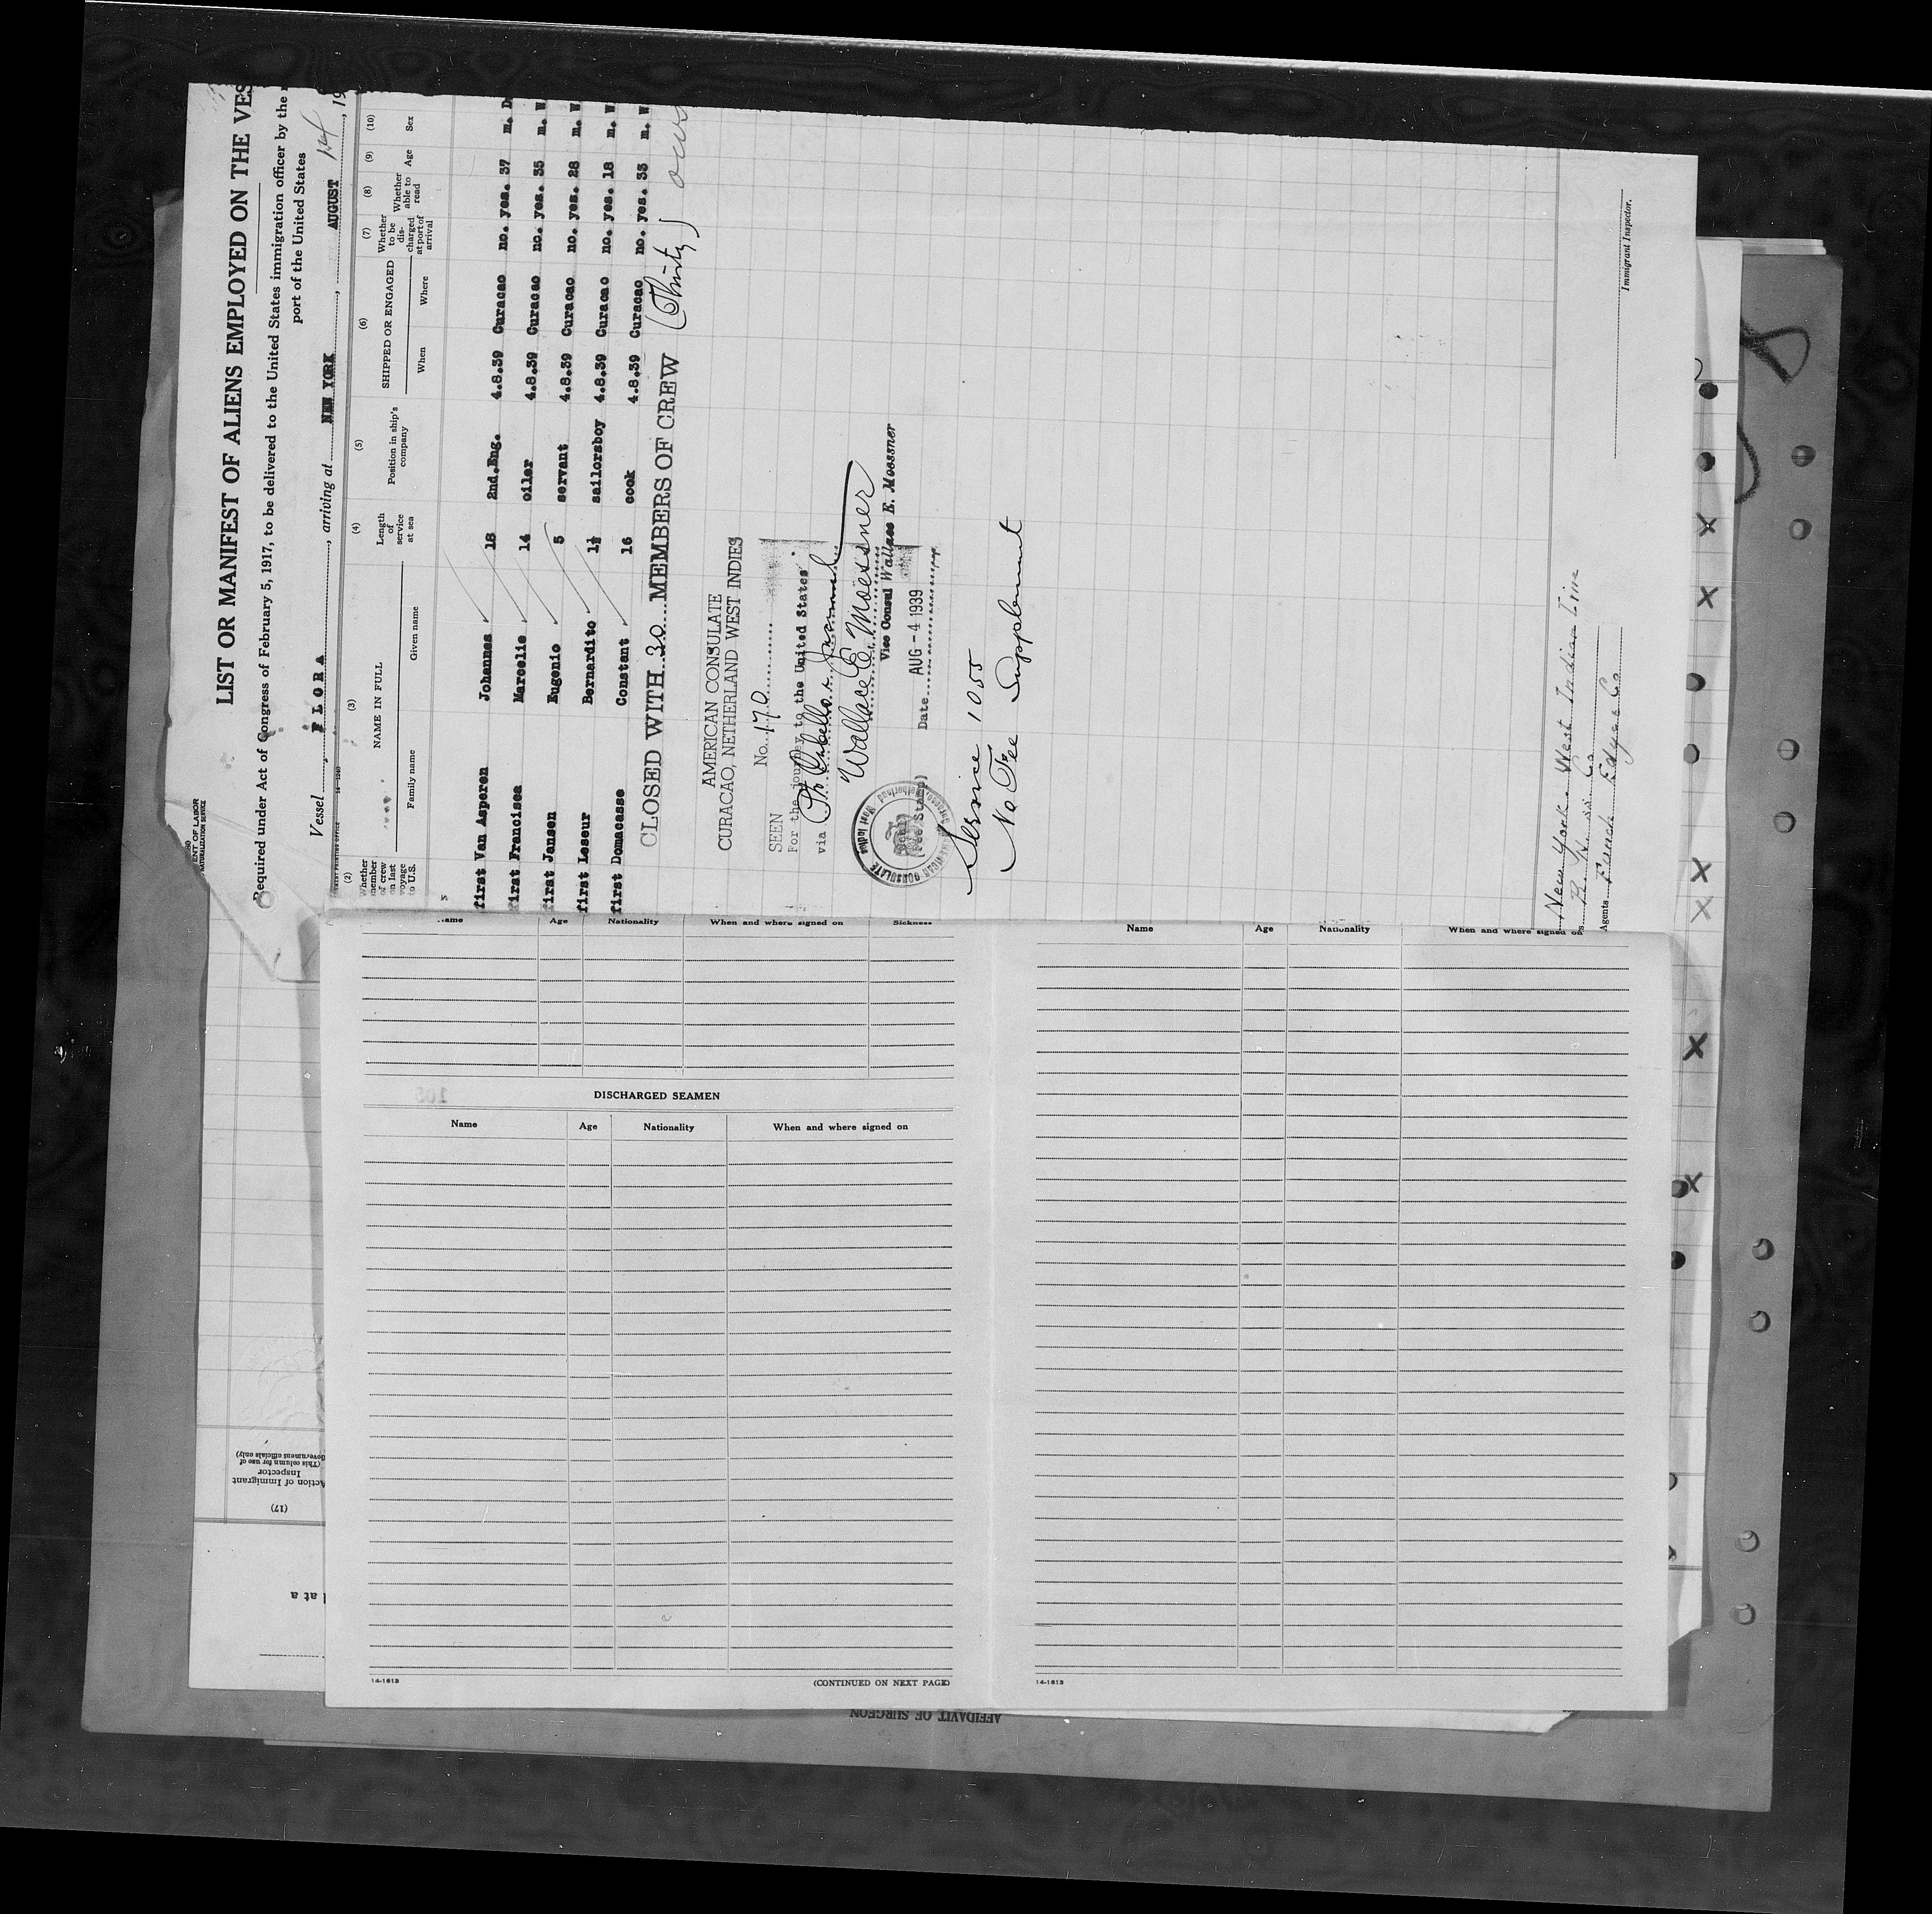 LIST OR MANIFEST OF ALIENS EMPLOYED ON THE VES
Required under Act of Congress of February 5, 1917, to be delivered to the United States immigration officer by the
port of the United States
Vessel FLORA, arriving at NEW YORK, AUGUST 19
(2) (3) (4) (5) (6) (7) (8) (9) (10)
Whether member of crew on last voyage to U.S.
NAME IN FULL
Family name Given name
Length of service at sea
Position in ship's company
SHIPPED OR ENGAGED
When Where
Whether to be discharged at port of arrival
Whether able to read
Age
Sex
first Van Asperen Johannes 18 2nd.Eng. 4.8.39 Curacao no. yes. 37 m. D
first Francisca Marcelie 14 oiler 4.8.39 Curacao no. yes. 35 m. W
first Jansen Eugenio 5 servant 4.8.39 Curacao no. yes. 28 m. W
first Leseur Bernardito 1½ sailorsboy 4.8.39 Curacao no. yes. 18 m. W
first Domacasse Constant 16 cook 4.8.39 Curacao no. yes. 33 m. W
CLOSED WITH 30 MEMBERS OF CREW (Thirty)
AMERICAN CONSULATE
CURACAO, NETHERLAND WEST INDIES
No. 170
SEEN
For the journey to the United States
via
Wallace E. Moessner
Vice Consul Wallace E. Moessner
Date AUG - 4 1939
(Fee Stamp)
Service 1055
No Fee Supplement
New York - West Indian Line
Agents Funch Edye & Co
Immigrant Inspector.
Name Age Nationality When and where signed on Sickness
DISCHARGED SEAMEN
Name Age Nationality When and where signed on
14-1613
(CONTINUED ON NEXT PAGE)
Name Age Nationality When and where signed on
14-1613
(17)
Action of Immigrant
Inspector
(This column for use of
Government officials only)
AFFIDAVIT OF SURGEON